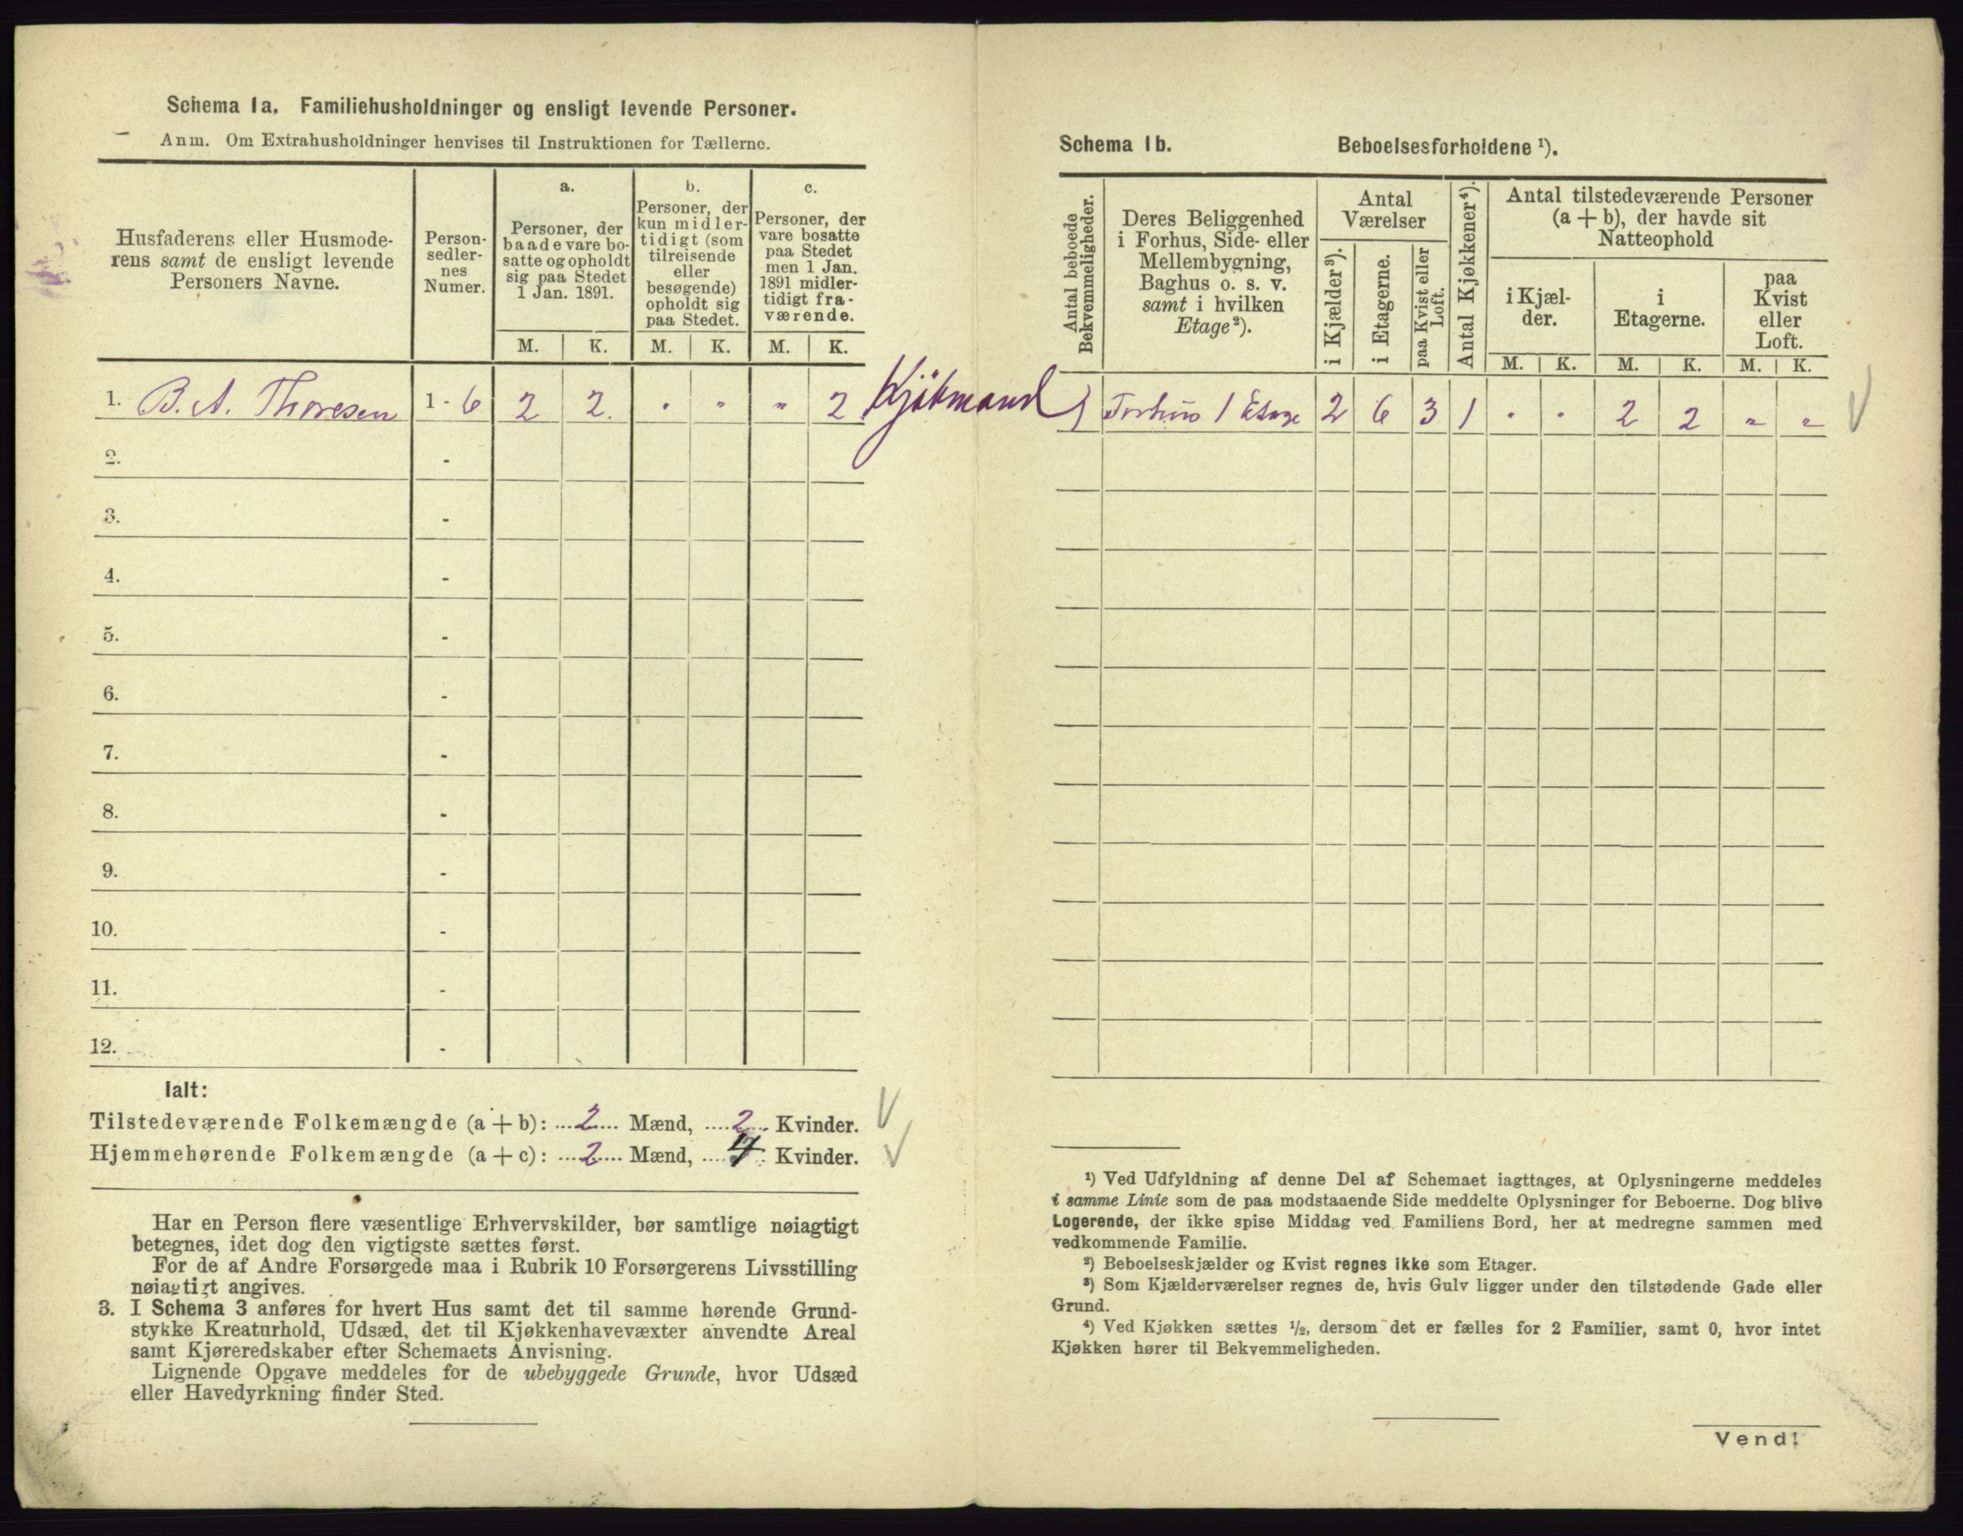 Schema 1a. Familiehusholdninger og ensligt levende Personer.
Anm. Om Extrahusholdninger henvises til Instruktionen for Tællerne.
Husfaderens eller Husmode-
rens samt de ensligt levende
Personers Navne.
Person-
sedler-
nes
Numer.
a.
Personer, der
baade vare bo-
satte og opholdt
sig paa Stedet
1 Jan. 1891.
b.
Personer, der
kun midler-
tidigt (som
tilreisende
eller
besøgende)
opholdt sig
paa Stedet.
c.
Personer, der
vare bosatte
paa Stedet
men 1 Jan.
1891 midler-
tidigt fra-
værende.
M. K. M. K. M. K.
1. B. A. Thoresen 1 - 6 2 2. " " " 2 Kjøbmand
2. -
3. -
4. -
5. -
6. -
7. -
8. -
9. -
10. -
11. -
12. -
Ialt:
Tilstedeværende Folkemængde (a + b): 2 Mænd, 2 Kvinder.
Hjemmehørende Folkemængde (a + c): 2 Mænd, 4 Kvinder.
Har en Person flere væsentlige Erhvervskilder, bør samtlige nøiagtigt
betegnes, idet dog den vigtigste sættes først.
For de af Andre Forsørgede maa i Rubrik 10 Forsørgerens Livsstilling
nøiagtigt angives.
3. I Schema 3 anføres for hvert Hus samt det til samme hørende Grund-
stykke Kreaturhold, Udsæd, det til Kjøkkenhavevæxter anvendte Areal
samt Kjøreredskaber efter Schemaets Anvisning.
Lignende Opgave meddeles for de ubebyggede Grunde, hvor Udsæd
eller Havedyrkning finder Sted.
Schema 1b. Beboelsesforholdene ¹).
Antal beboede
Bekvemmeligheder.
Deres Beliggenhed
i Forhus, Side- eller
Mellembygning,
Baghus o. s. v.
samt i hvilken
Etage²).
Antal
Værelser
i Kjælder³).
i Etagerne.
paa Kvist eller
Loft.
Antal Kjøkkener⁴).
Antal tilstedeværende Personer
(a + b), der havde sit
Natteophold
i Kjæl-
der.
i
Etagerne.
paa
Kvist
eller
Loft.
M. K. M. K. M. K.
1 Forhus 1 Etage 2 6 3 1 " " 2 2 " "
¹) Ved Udfyldning af denne Del af Schemaet iagttages, at Oplysningerne meddeles
i samme Linie som de paa modstaaende Side meddelte Oplysninger for Beboerne. Dog blive
Logerende, der ikke spise Middag ved Familiens Bord, her at medregne sammen med
vedkommende Familie.
²) Beboelseskjælder og Kvist regnes ikke som Etager.
³) Som Kjælderværelser regnes de, hvis Gulv ligger under den tilstødende Gade eller
Grund.
⁴) Ved Kjøkken sættes ½, dersom det er fælles for 2 Familier, samt 0, hvor intet
Kjøkken hører til Bekvemmeligheden.
Vend!